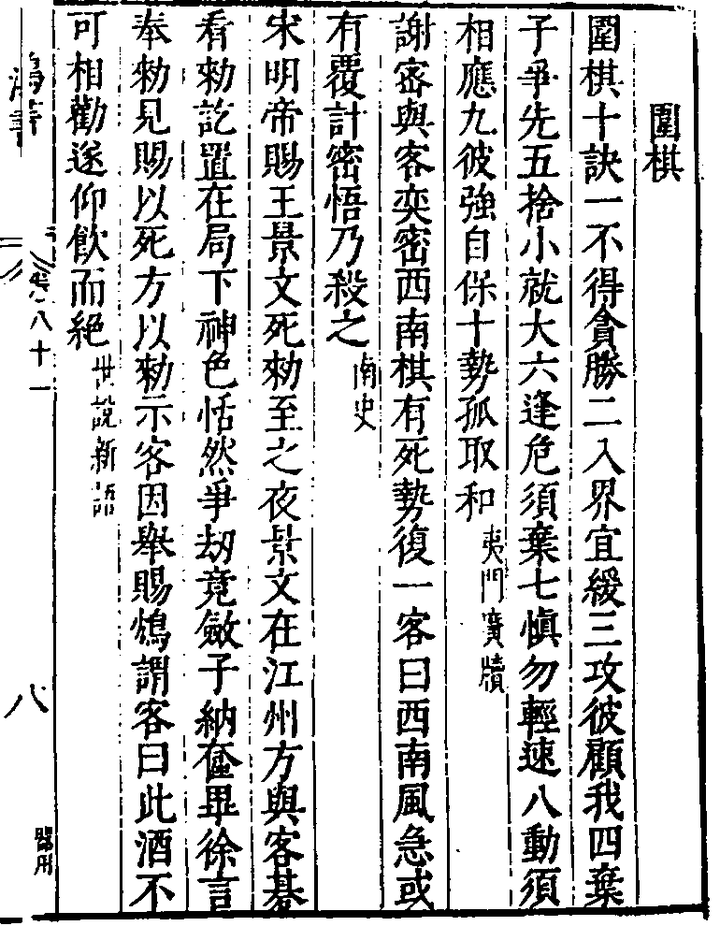 圍棋
圍棋十訣一不得貪勝二入界宜緩三攻彼顧我四棄
子爭先五捨小就大六逢危須棄七慎勿輕速八動須
相應九彼強自保十勢孤取和 夷門廣牘
謝密與客奕密西南棋有死勢復一客曰西南風急或
有覆計密悟乃殺之 南史
宋明帝賜王景文死勑至之夜景文在江州方與客棊
看勑訖置在局下神色恬然爭劫竟斂子納奩畢徐言
奉勑見賜以死方以勑示客因舉賜鴆謂客曰此酒不
可相勸遂仰飲而絶 世説新語
八十一
八
器用